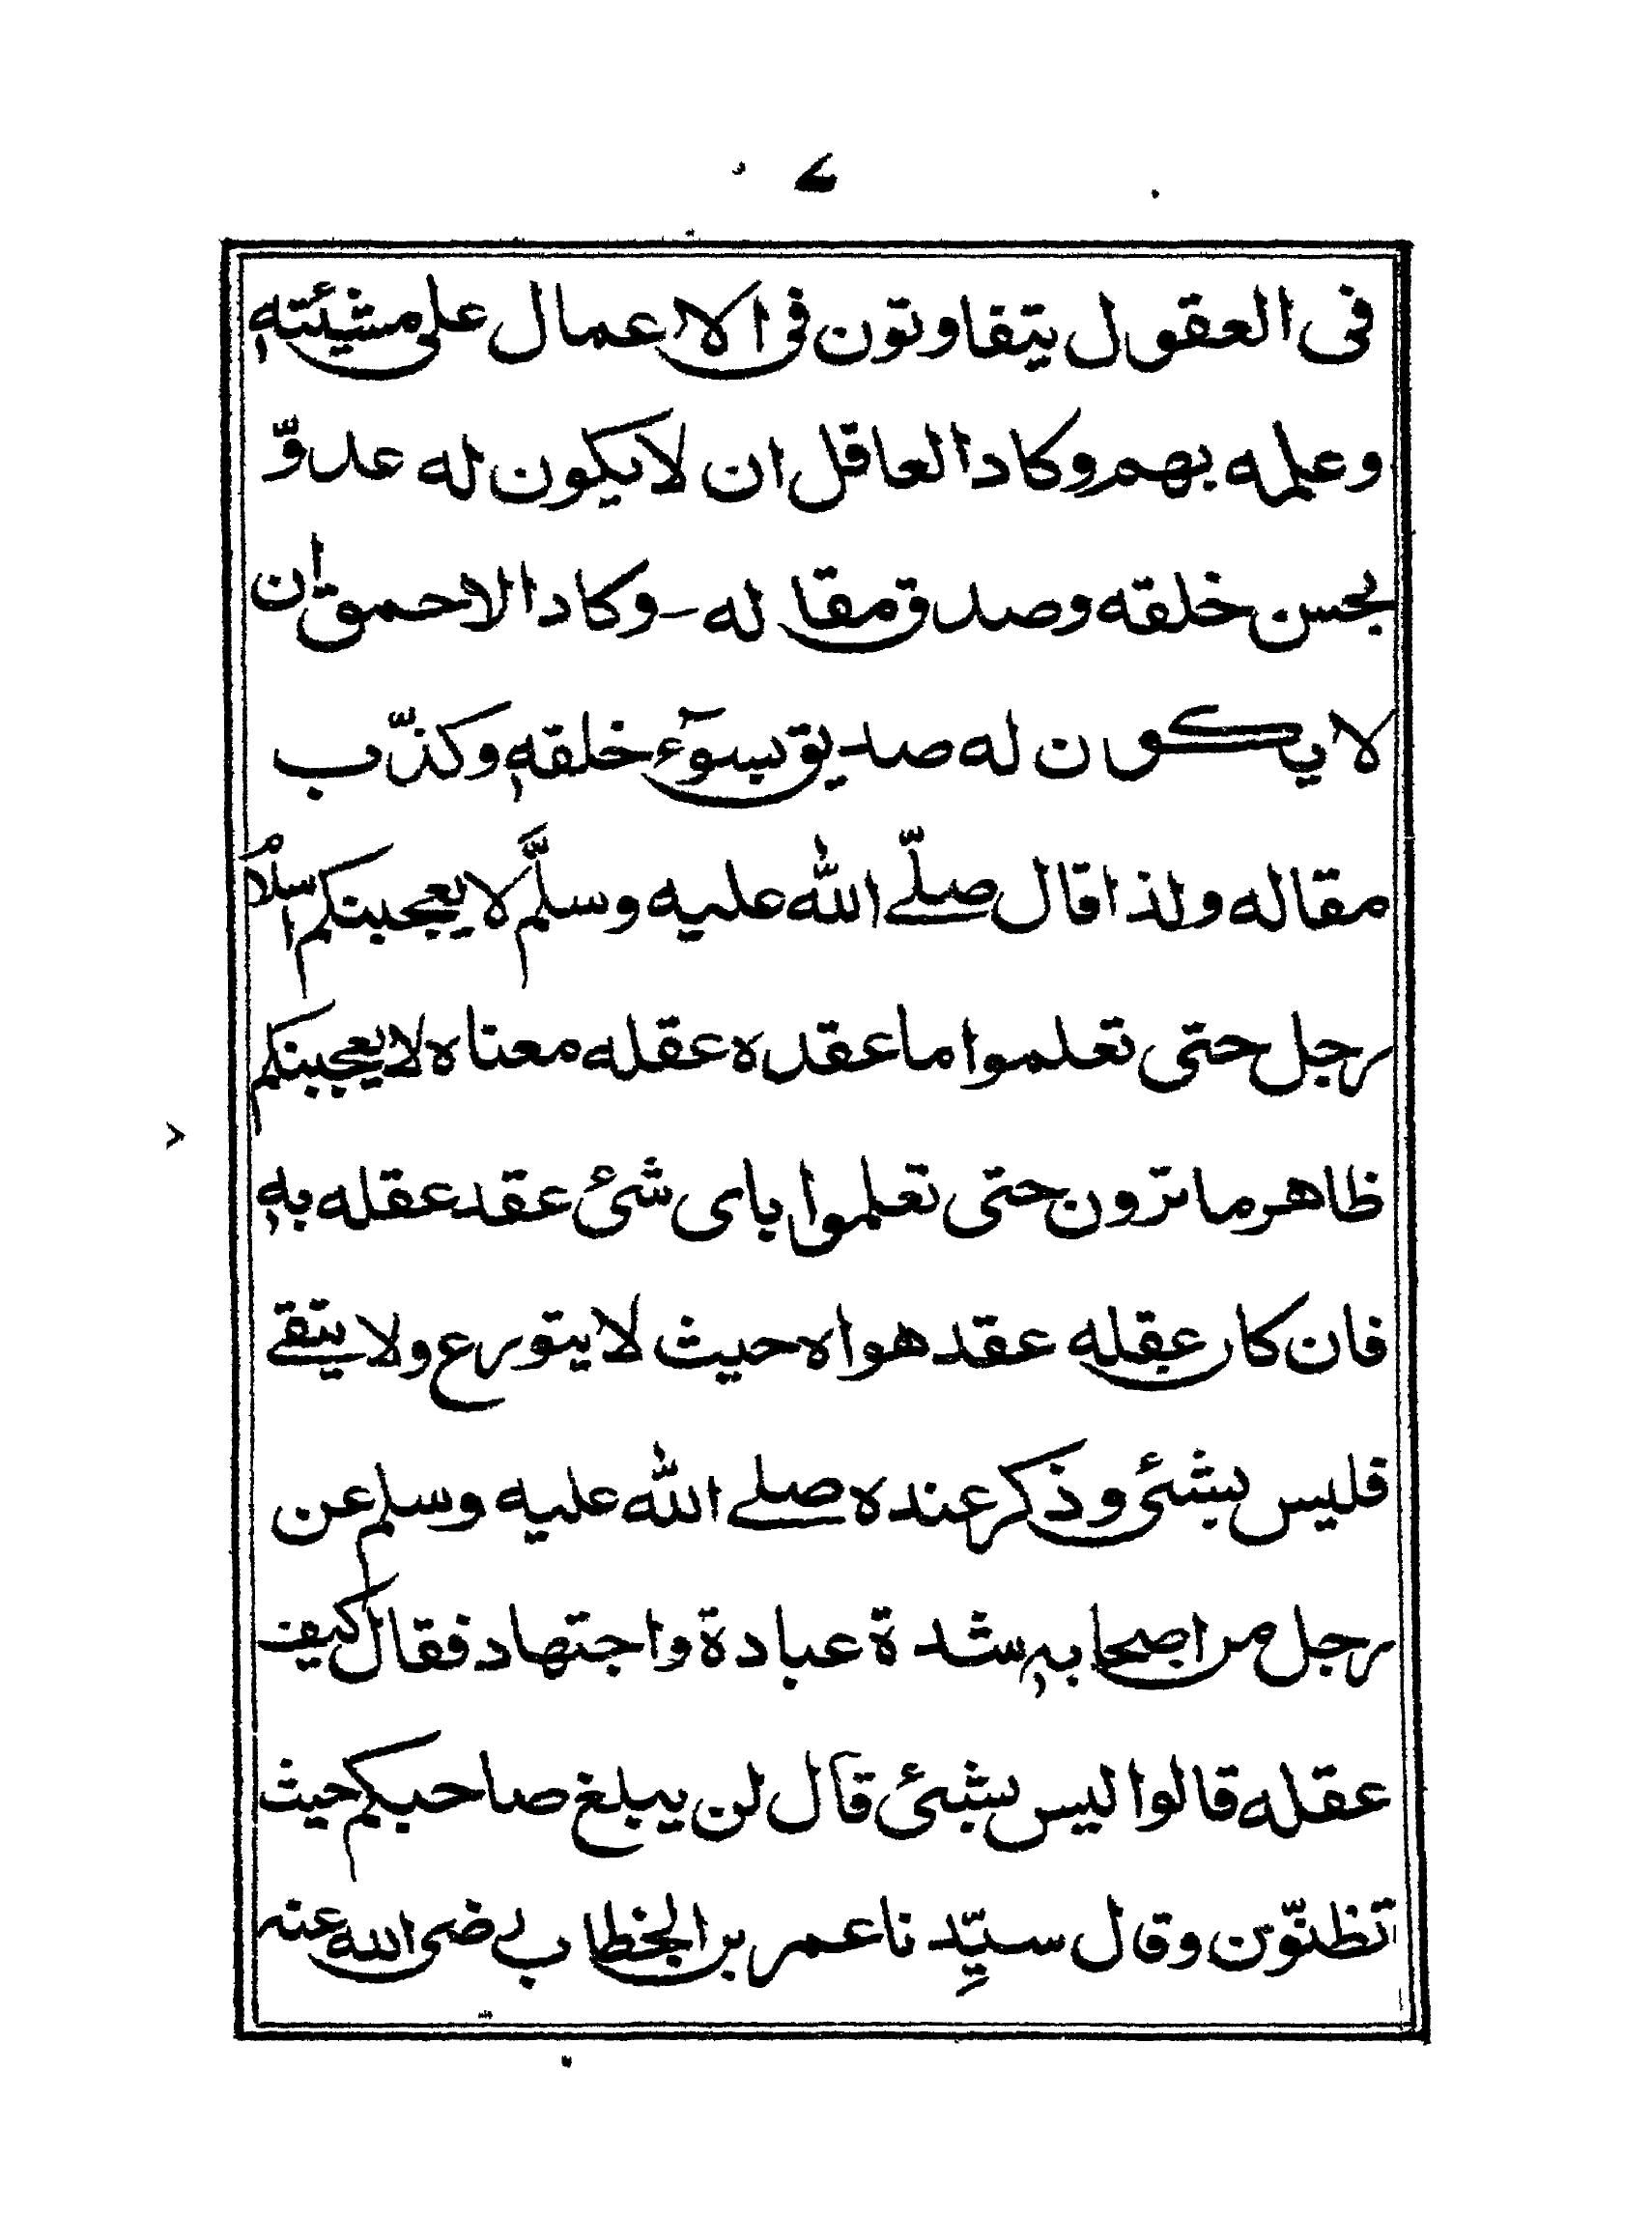 ۷
فى العقول يتفاوتون فى الاعمال على مشيئته
وعلمه بهم وكاد العاقل ان لايكون له عدوّ
بحسن خلقه وصدق مقا له ـ وكاد الاحمق ان
لا يكون له صديق بسوٓء خلقهٖ وكذّب
مقاله ولذا قال صلّے الله عليه وسلَّم لا يعجبنكم اسلام
رجل حتى تعلموا ماعقده عقله معناه لايعجبنكم
ظاهر ماترون حتى تعلموا باى شئ عقد عقله بهٖ
فان كان عقله عقد هواه حيث لا يتورع ولا يتقے
فليس بشئ وذكر عنده صلے الله عليه وسلم عن
رجل من اصحابهٖ شدة عبادة واجتهاد فقال كيف
عقله قالوا ليس بشئ قال لن يبلغ صاحبكم حيث
تظنّون وقال سيّدِنا عمر بن الخطاب رضى الله عنه